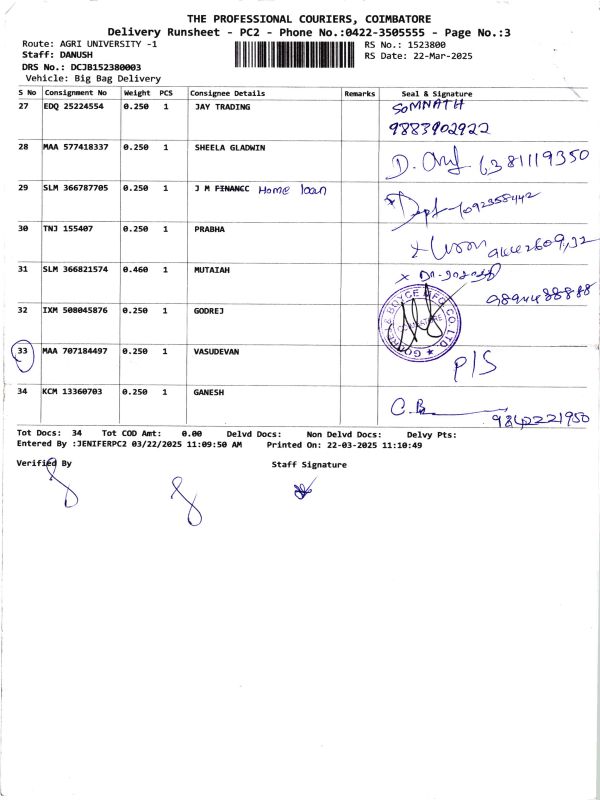 THE PROFESSIONAL COURIERS, COIMBATORE
Delivery Runsheet - PC2 - Phone No.:0422-3505555 - Page No.:3
Route: AGRI UNIVERSITY -1 RS No.: 1523800
Staff: DANUSH RS Date: 22-Mar-2025
DRS No.: DCJB152380003
Vehicle: Big Bag Delivery
S No Consignment No Weight PCS Consignee Details Remarks Seal & Signature
27 EDQ 25224554 0.250 1 JAY TRADING SOMNATH
9883902922
28 MAA 577418337 0.250 1 SHEELA GLADWIN D. 6381119350
29 SLM 366787705 0.250 1 J M FINANCC Home loan
30 TNJ 155407 0.250 1 PRABHA
31 SLM 366821574 0.460 1 MUTAIAH
9894488888
32 IXM 508045876 0.250 1 GODREJ
GODREJ & BOYCE MFG. CO. LTD.
33 MAA 707184497 0.250 1 VASUDEVAN P/S
34 KCM 13360703 0.250 1 GANESH C.B
9842221950
Tot Docs: 34 Tot COD Amt: 0.00 Delvd Docs: Non Delvd Docs: Delvy Pts:
Entered By :JENIFERPC2 03/22/2025 11:09:50 AM Printed On: 22-03-2025 11:10:49
Verified By Staff Signature